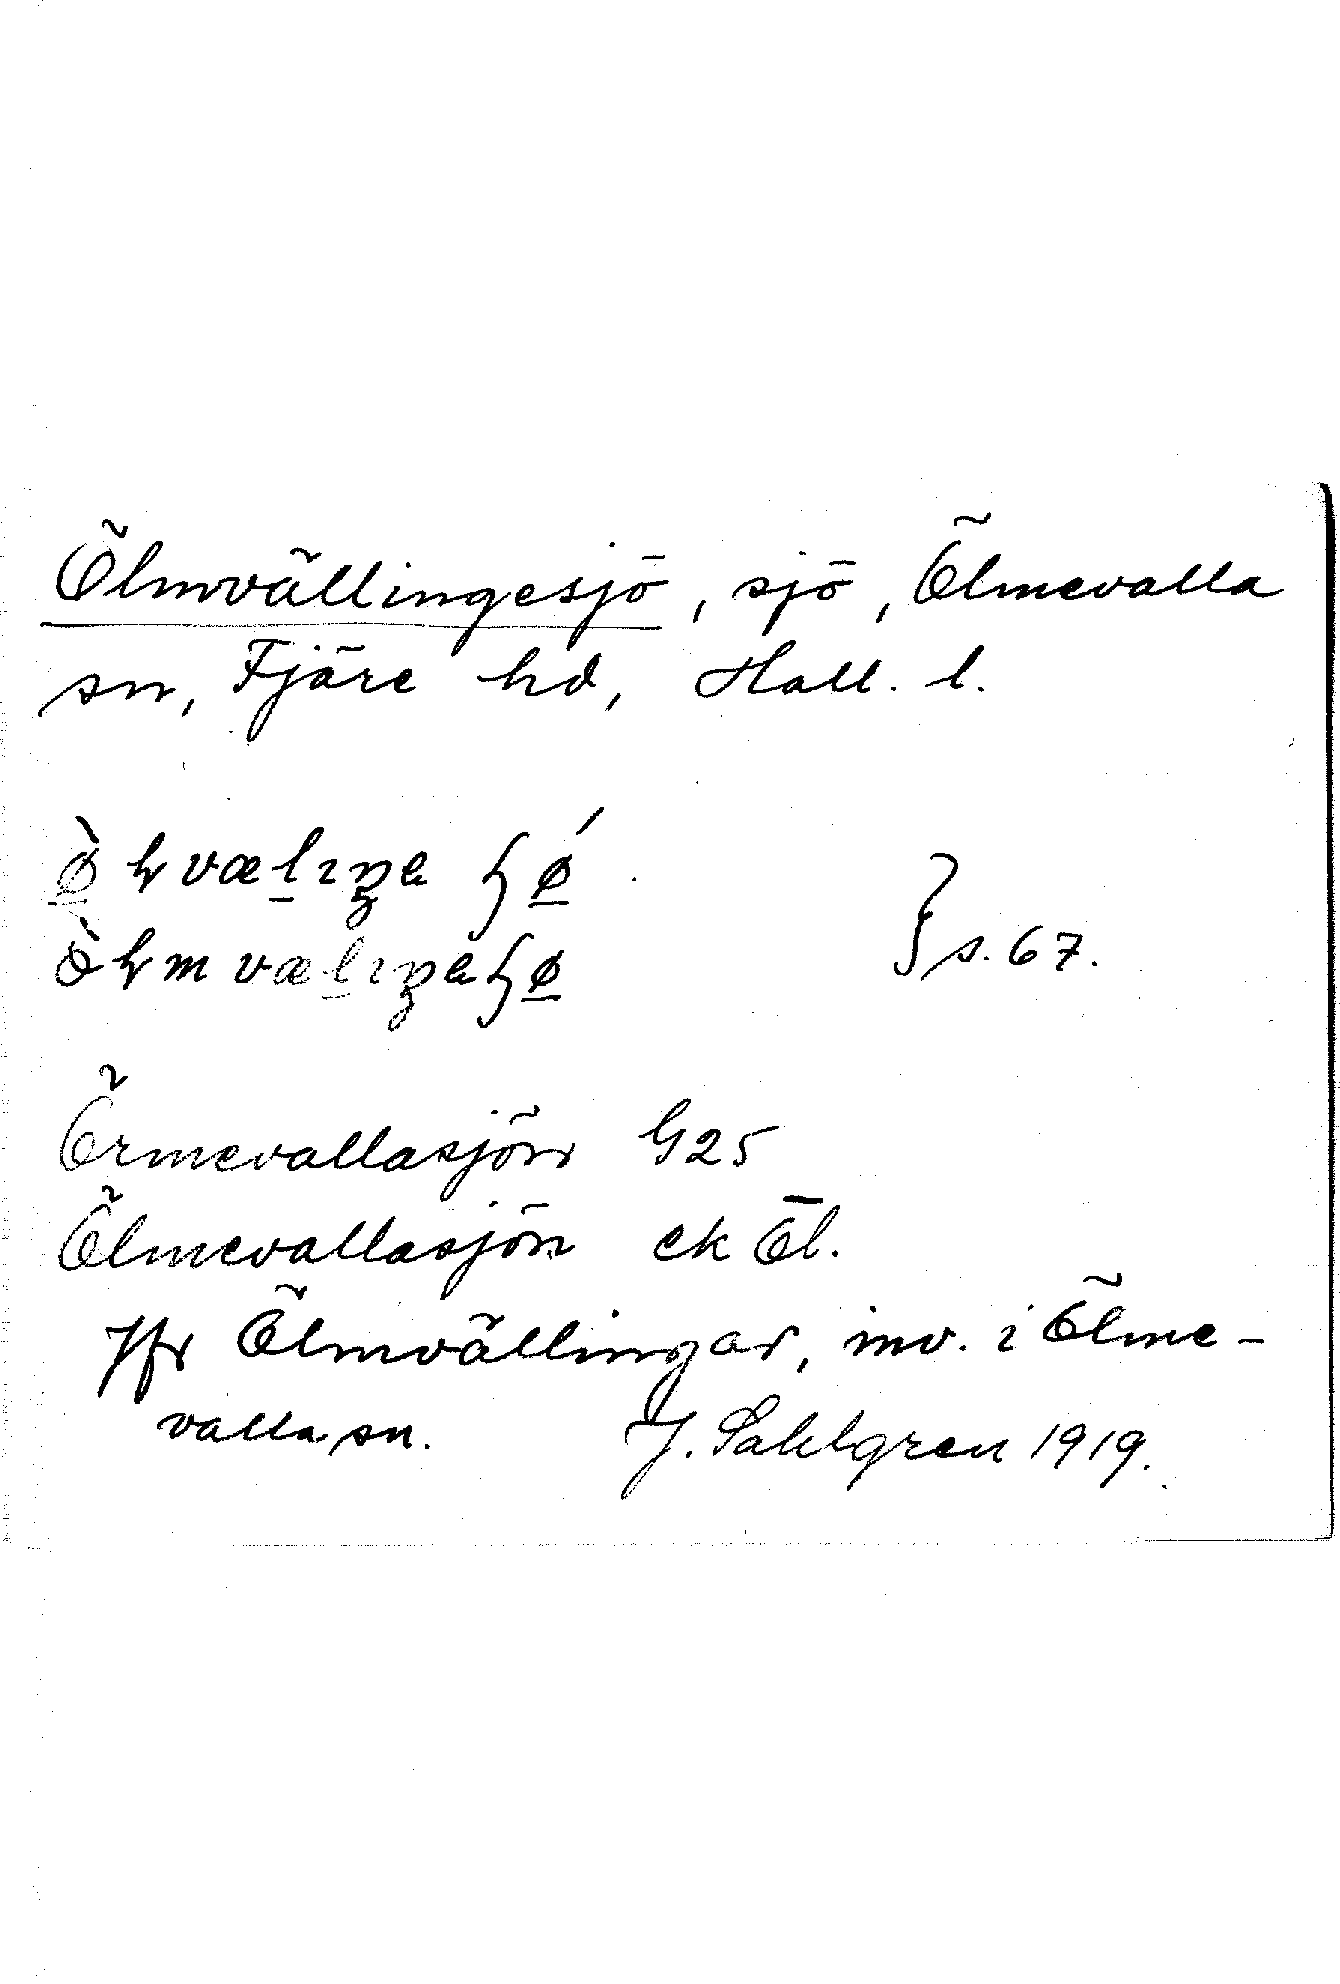 Ölmvällingesjö, sjö, Ölmevalla
sn, Fjäre hd, Hall. l.
s. 67.
Örmevallasjön G25
Ölmevallasjön ek Öl.
Jfr Ölmvällingar, inv. i Ölme-
valla sn. J. Sahlgren 1919.